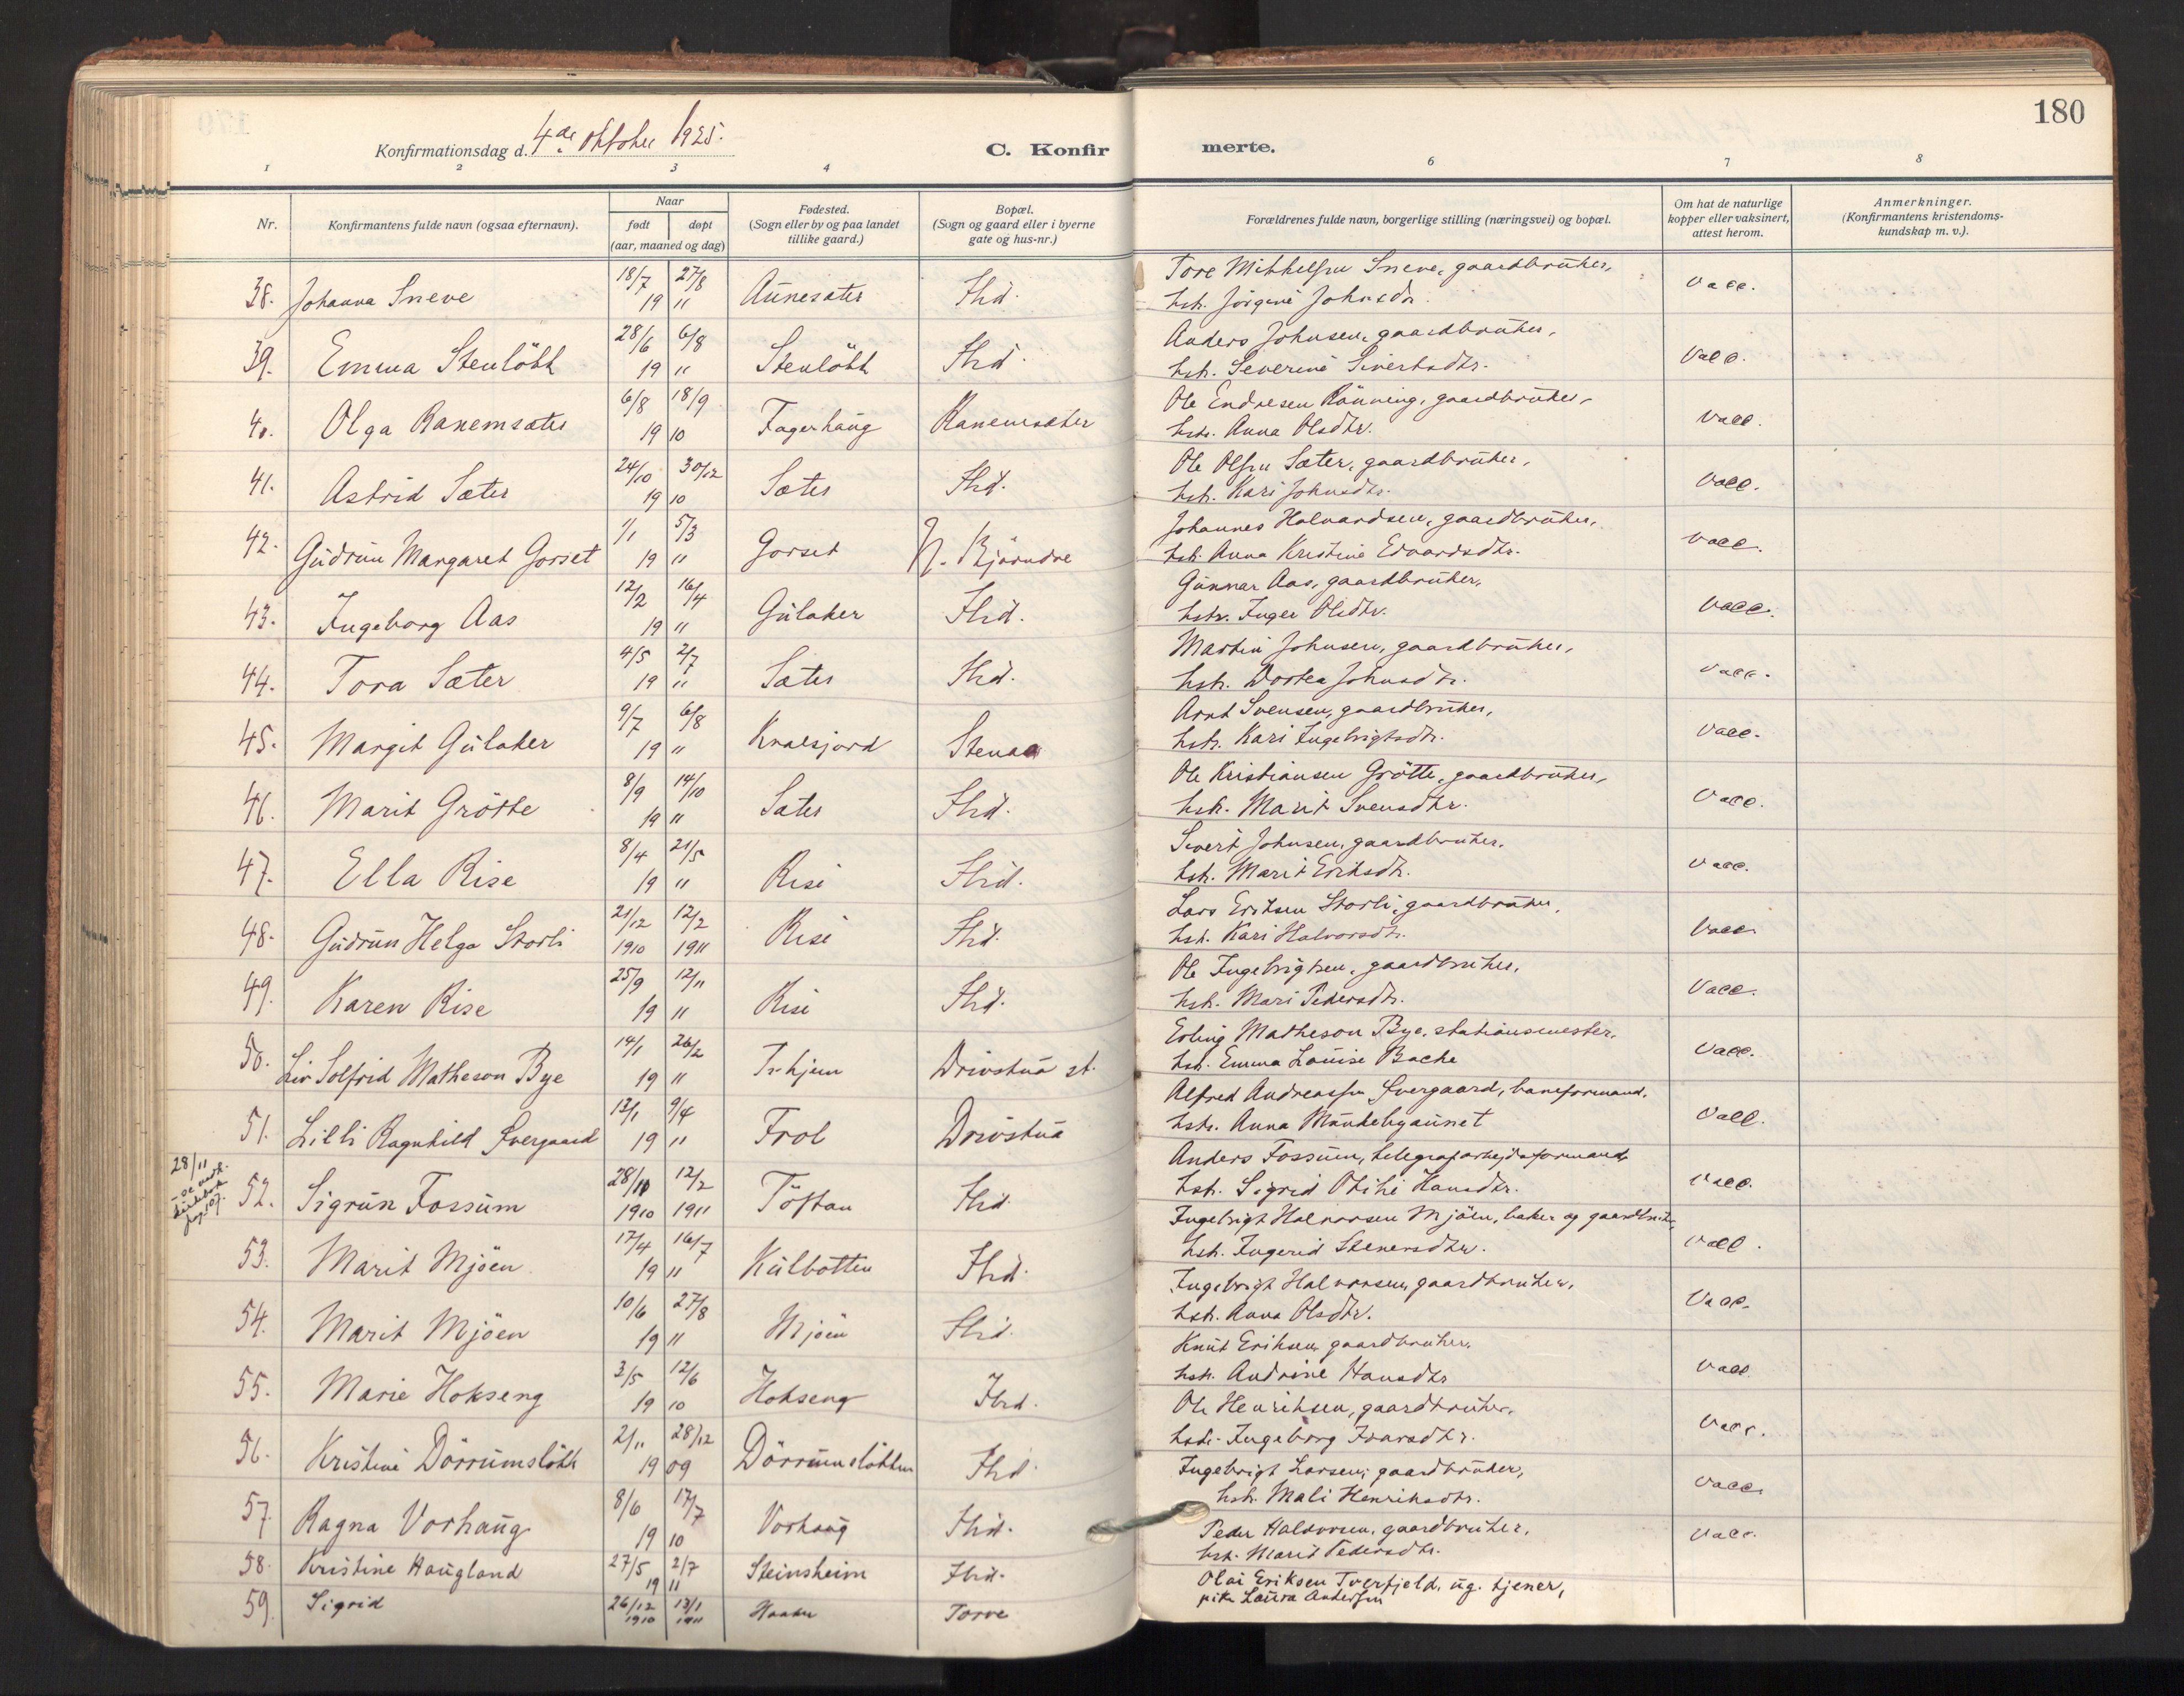 180
Konfirmationsdag d. 4de oktober 1925.
C. Konfirmerte.
1 2 3 4 6 7 8
Nr. Konfirmantens fulde navn (ogsaa efternavn). Naar født døpt (aar, maaned og dag) Fødested. (Sogn eller by og paa landet tillike gaard.) Bopæl. (Sogn og gaard eller i byerne gate og hus-nr.) Forældrenes fulde navn, borgerlige stilling (næringsvei) og bopæl. Om hat de naturlige kopper eller vaksinert, attest herom. Anmerkninger. (Konfirmantens kristendoms-kundskap m. v.).
38. Johanna Sneve 18/7 19 27/8 11 Aunesæter Ibid. Tore Mikkelsen Sneve, gaardbruker, vacc.
hstr. Jörgine Johnsdr.
39. Emma Stenlökk 28/6 19 6/8 11 Stenlökk Ibid. Anders Johnsen, gaardbruker, vacc.
hstr. Severine Sivertsdtr.
40. Olga Ranemsæter 6/8 19 18/9 10 Fagerhaug Ranemsæter Ole Endresen Rönning, gaardbruker, vacc.
hstr. Anna Olsdtr.
41. Astrid Sæter 24/10 19 30/12 10 Sæter Ibid. Ole Olsen Sæter, gaardbruker, vacc.
hstr. Kari Johnsdtr.
42. Gudrun Margaret Gorset 1/1 19 5/3 11 Gorset N. Bjørndre Johannes Halvardsen, gaardbruker, vacc.
hstr. Anna Kristine Edvardsdtr.
43. Ingeborg Aas 12/2 19 16/4 11 Gulaker Ibid. Gunnar Aas, gaardbruker, vacc.
hstr. Inger Olsdtr.
44. Tora Sæter 4/5 19 2/7 11 Sæter Ibid. Martin Johnsen, gaardbruker, vacc.
hstr. Dortea Johnsdtr.
45. Margit Gulaker 9/7 19 6/8 11 Stenaa Arnt Svensen, gaardbruker, vacc.
hstr. Kari Ingebrigtsdtr.
46. Marit Grötte 8/9 19 14/10 11 Sæter Ibid. Ole Kristiansen Grötte, gaardbruker, vacc.
hstr. Marit Svensdtr.
47. Ella Rise 8/4 19 21/5 11 Rise Ibid. Sivert Johnsen, gaardbruker, vacc.
hstr. Marit Eriksdtr.
48. Gudrun Helga Storli 21/12 1910 12/2 1911 Rise Ibid. Lars Eriksen Storli, gaardbruker, vacc.
hstr. Kari Halvorsdtr.
49. Karen Rise 25/9 19 12/11 11 Rise Ibid. Ole Ingebrigtsen, gaardbruker, vacc.
hstr. Mari Pedersdtr.
50. Liv Solfrid Matheson Bye 14/1 19 26/2 11 Tr.hjem Drivstua st. Erling Matheson Bye, stationsmester, vacc.
hstr. Emma Louise Bache
51. Lilli Ragnhild Overgaard 13/1 19 9/4 11 Frol Drivstua Alfred Andreassen Overgaard, baneformand, vacc.
hstr. Anna Munkebygaunet
28/11
52. Sigrun Fossum 28/10 1910 12/2 1911 Töftan Ibid. Anders Fossum, telegrafarbejdsformand, vacc.
hstr. Sigrid Otilie Hansdtr.
53. Marit Mjöen 17/4 19 16/7 11 Kulbotten Ibid. Ingebrigt Halvorsen Mjöen, baker og gaardbruker, vacc.
hstr. Ingerid Stenersdtr.
54. Marit Mjöen 10/6 19 27/8 11 Mjöen Ibid. Ingebrigt Halvorsen, gaardbruker, vacc.
hstr. Anna Olsdtr.
55. Marie Hokseng 3/5 19 12/6 10 Hokseng Ibid. Knut Eriksen, gaardbruker, vacc.
hstr. Andrine Hansdtr
56. Kristine Dörrumslökk 2/11 19 28/12 09 Dörrumslökken Ibid Ole Henriksen, gaardbruker, vacc.
hstr. Ingeborg Ivarsdtr.
57. Ragna Vorhaug 8/6 19 17/7 10 Vorhaug Ibid. Ingebrigt Larsen, gaardbruker, vacc.
hstr. Mali Henriksdtr.
58. Kristine Haugland 27/5 19 2/7 11 Steinsheim Ibid. Peder Haldorsen, gaardbruker, vacc.
hstr. Marit Pedersdtr.
59. Sigrid 26/12 1910 13/1 1911 Torve Olai Eriksen Tverfjeld, ug. tjener,
pike Laura Andersen